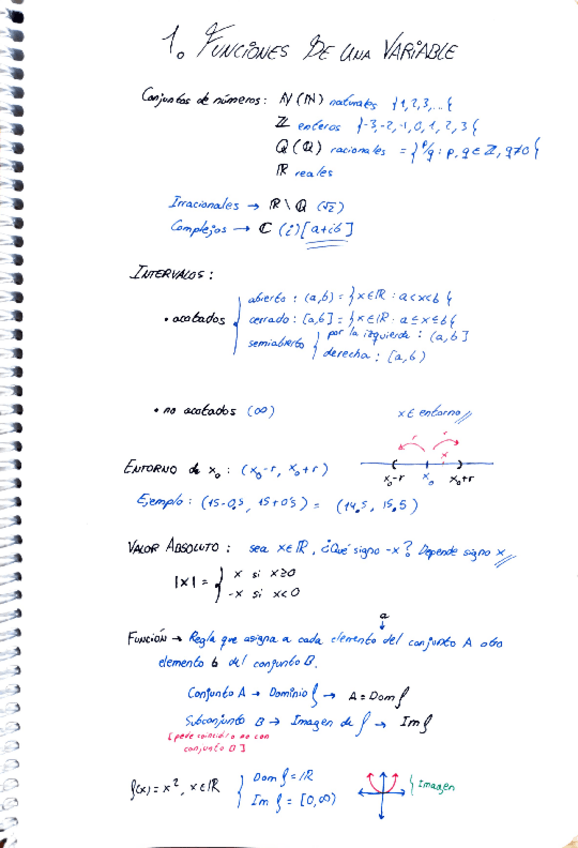 1. FUNCIONES DE UNA VARIABLE
Conjuntos de números: N (ℕ) naturales {1,2,3,...{
ℤ enteros {-3,-2,-1,0,1,2,3{
Q (ℚ) racionales = {p/q : p,q ∈ ℤ, q≠0{
ℝ reales
Irracionales → ℝ \ ℚ (√2)
Complejos → ℂ (i) [a+ib]
INTERVALOS:
• acotados
abierto: (a,b) = {x∈ℝ : a<x<b{
cerrado: [a,b] = {x∈ℝ : a≤x≤b{
semiabierto { por la izquierda : (a,b]
derecha : [a,b)
• no acotados (∞)
x ∈ entorno
r r
x
ENTORNO de x₀ : (x₀-r, x₀+r)
x₀-r x₀ x₀+r
Ejemplo: (15-0,5, 15+0'5) = (14,5, 15,5)
VALOR ABSOLUTO : sea x∈ℝ, ¿Qué signo -x? Depende signo x
|x| = { x si x≥0
-x si x<0
a
FUNCIÓN → Regla que asigna a cada elemento del conjunto A otro
elemento b del conjunto B.
Conjunto A → Dominio f → A = Dom f
Subconjunto B → Imagen de f → Im f
[puede coincidir o no con
conjunto B]
f(x) = x², x∈ℝ
Dom f = ℝ
Im f = [0,∞)
Imagen